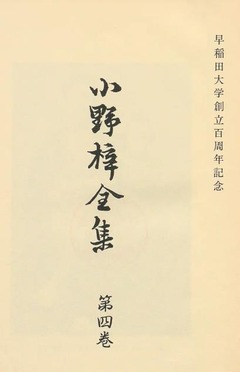 早稲田大学創立百周年記念
小野梓全集
第四巻